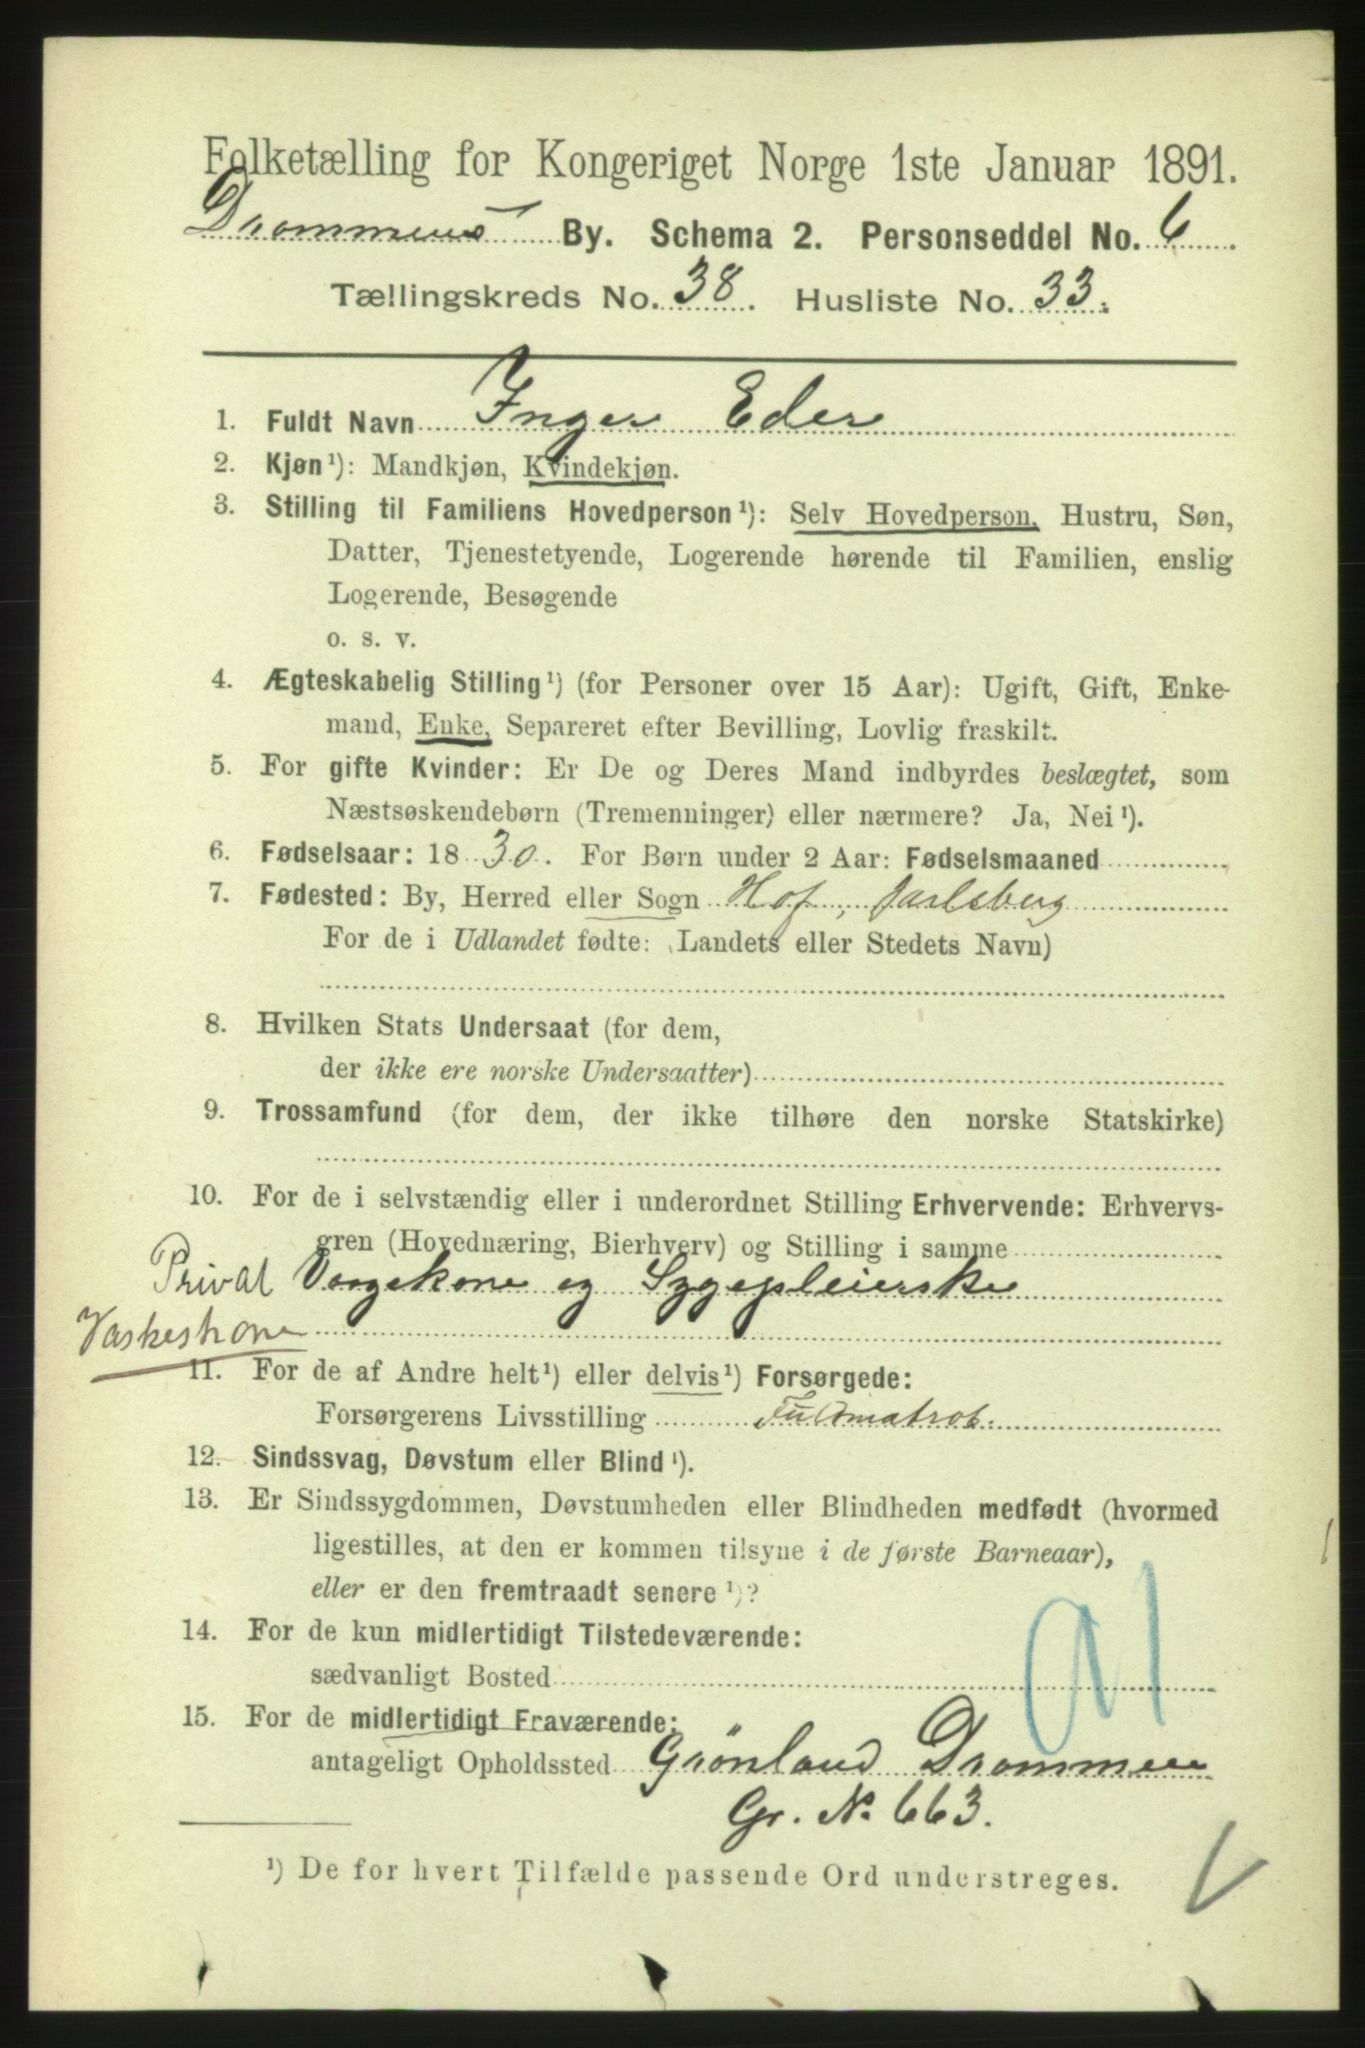 Folketælling for Kongeriget Norge 1ste Januar 1891.
Drammens By. Schema 2. Personseddel No. 6
Tællingskreds No. 38. Husliste No. 33.
1. Fuldt Navn Inger Eder
2. Kjøn¹): Mandkjøn, Kvindekjøn.
3. Stilling til Familiens Hovedperson¹): Selv Hovedperson, Hustru, Søn,
Datter, Tjenestetyende, Logerende hørende til Familien, enslig
Logerende, Besøgende
o. s. v.
4. Ægteskabelig Stilling¹) (for Personer over 15 Aar): Ugift, Gift, Enke-
mand, Enke, Separeret efter Bevilling, Lovlig fraskilt.
5. For gifte Kvinder: Er De og Deres Mand indbyrdes beslægtet, som
Næstsøskendebørn (Tremenninger) eller nærmere? Ja, Nei¹).
6. Fødselsaar: 1830. For Børn under 2 Aar: Fødselsmaaned
7. Fødested: By, Herred eller Sogn Hof, Jarlsberg
For de i Udlandet fødte: (Landets eller Stedets Navn)
8. Hvilken Stats Undersaat (for dem,
der ikke ere norske Undersaatter)
9. Trossamfund (for dem, der ikke tilhøre den norske Statskirke)
10. For de i selvstændig eller i underordnet Stilling Erhvervende: Erhvervs-
gren (Hovednæring, Bierhverv) og Stilling i samme
Privat Vaagekone og Sygepleierske
Vaskeskone
11. For de af Andre helt¹) eller delvis¹) Forsørgede:
Forsørgerens Livsstilling
12. Sindssvag, Døvstum eller Blind¹).
13. Er Sindssygdommen, Døvstumheden eller Blindheden medfødt (hvormed
ligestilles, at den er kommen tilsyne i de første Barneaar),
eller er den fremtraadt senere¹)?
14. For de kun midlertidigt Tilstedeværende:
sædvanligt Bosted
15. For de midlertidigt Fraværende:
antageligt Opholdssted Grönland Drammen
Gr. No 663.
¹) De for hvert Tilfælde passende Ord understreges.